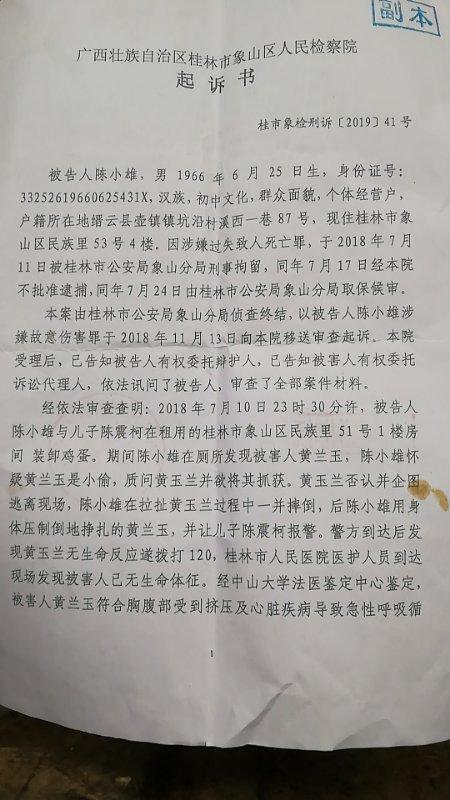 副本
广西壮族自治区桂林市象山区人民检察院
起诉书
桂市象检刑诉〔2019〕41号
被告人陈小雄，男 1966 年 6 月 25 日生，身份证号：
33252619660625431X，汉族，初中文化，群众面貌，个体经营户，
户籍所在地缙云县壶镇镇坑沿村溪西一巷 87 号，现住桂林市象
山区民族里 53 号 4 楼。因涉嫌过失致人死亡罪，于 2018 年 7 月
11 日被桂林市公安局象山分局刑事拘留，同年 7 月 17 日经本院
不批准逮捕，同年 7 月 24 日由桂林市公安局象山分局取保候审。
本案由桂林市公安局象山分局侦查终结，以被告人陈小雄涉
嫌故意伤害罪于 2018 年 11 月 13 日向本院移送审查起诉。本院
受理后，已告知被告人有权委托辩护人，已告知被害人有权委托
诉讼代理人，依法讯问了被告人，审查了全部案件材料。
经依法审查查明：2018 年 7 月 10 日 23 时 30 分许，被告人
陈小雄与儿子陈震柯在租用的桂林市象山区民族里 51 号 1 楼房
间 装卸鸡蛋。期间陈小雄在厕所发现被害人黄兰玉，陈小雄怀
疑黄兰玉是小偷，质问黄玉兰并欲将其抓获。黄玉兰否认并企图
逃离现场，陈小雄在拉扯黄玉兰过程中一并摔倒，后陈小雄用身
体压制倒地挣扎的黄兰玉，并让儿子陈震柯报警。警方到达后发
现黄玉兰无生命反应遂拨打 120，桂林市人民医院医护人员到达
现场发现被害人已无生命体征。经中山大学法医鉴定中心鉴定，
被害人黄兰玉符合胸腹部受到挤压及心脏疾病导致急性呼吸循
1